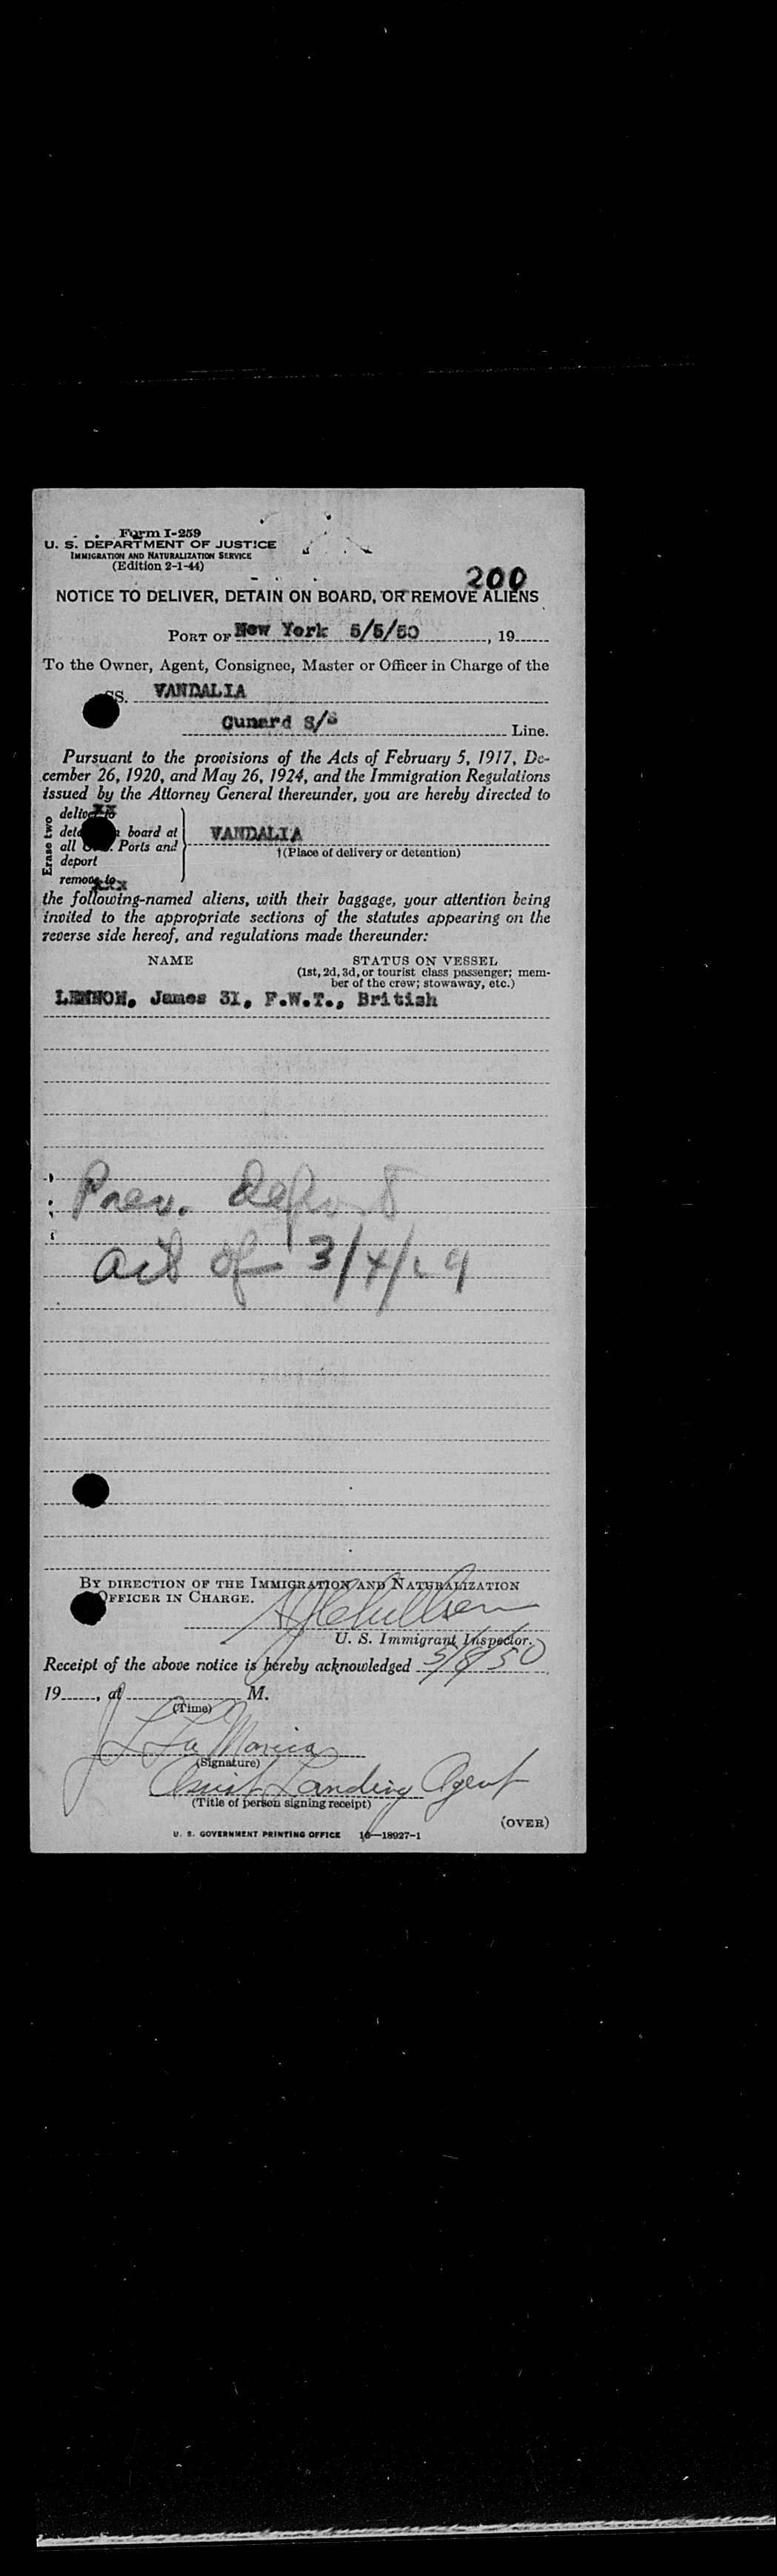 Form I-259
U. S. DEPARTMENT OF JUSTICE
IMMIGRATION AND NATURALIZATION SERVICE
(Edition 2-1-44)
200
NOTICE TO DELIVER, DETAIN ON BOARD, OR REMOVE ALIENS
PORT OF New York 5/5/50, 19
To the Owner, Agent, Consignee, Master or Officer in Charge of the
SS. VANDALIA
Cunard S/S Line.
Pursuant to the provisions of the Acts of February 5, 1917, De-
cember 26, 1920, and May 26, 1924, and the Immigration Regulations
issued by the Attorney General thereunder, you are hereby directed to
Erase two
board at
all Ports and
deport
remove to
VANDALIA
†(Place of delivery or detention)
the following-named aliens, with their baggage, your attention being
invited to the appropriate sections of the statutes appearing on the
reverse side hereof, and regulations made thereunder:
NAME STATUS ON VESSEL
(1st, 2d, 3d, or tourist class passenger; mem-
ber of the crew; stowaway, etc.)
LENNON, James 31, F.W.T., British
Prev. Deport
act of 3/4/29
BY DIRECTION OF THE IMMIGRATION AND NATURALIZATION
OFFICER IN CHARGE.
U. S. Immigrant Inspector.
Receipt of the above notice is hereby acknowledged 5/8/50
19, at M.
(Time)
J L La Monica
(Signature)
Asist Landing Agent
(Title of person signing receipt)
(OVER)
U. S. GOVERNMENT PRINTING OFFICE 16—18927-1